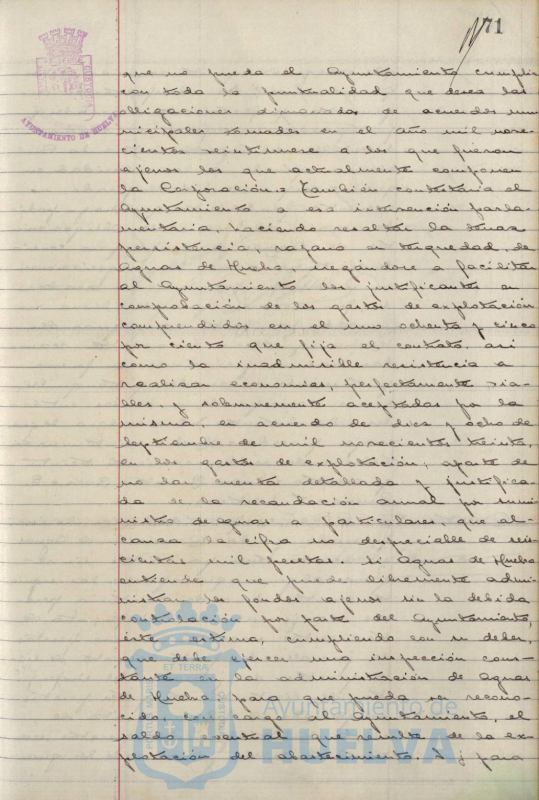 71
AYUNTAMIENTO DE HUELVA
que no pueda el Ayuntamiento cumplir
con toda la puntualidad que desea las
obligaciones dimanadas de acuerdos mu
nicipales tomados en el año mil nove-
cientos veintinueve a los que fueron
ajenos los que actualmente componen
la Corporación.= También contestaria el
Ayuntamiento a esa intervención parla-
mentaria, haciendo resaltar la tenaz
persistencia, rayana en terquedad, de
Aguas de Huelva, negándose a facilitar
al Ayuntamiento los justificantes en
comprobación de los gastos de explotación
comprendidos en el uno ochenta y cinco
por ciento que fija el contrato, asi
como la inadmisible resistencia a
realizar economias, perfectamente via-
bles, y solemnemente aceptadas por la
misma, en acuerdo de diez y ocho de
Septiembre de mil novecientos treinta,
en los gastos de explotación, aparte de
no dar cuenta detallada y justifica-
da de la recaudación anual por sumi-
nistro de aguas a particulares, que al-
canza la cifra no despreciable de seis-
cientas mil pesetas. Si Aguas de Huelva
entiende que puede libremente admi-
nistrar los fondos ajenos sin la debida
controlación por parte del Ayuntamiento,
éste estima, cumpliendo con su deber,
que debe ejercer una inspección cons-
tante en la administración de Aguas
de Huelva para que pueda ser recono-
cido, con cargo al Ayuntamiento, el
saldo que resulte de la ex-
plotación del abastecimiento. Y para
Ayuntamiento de
HUELVA